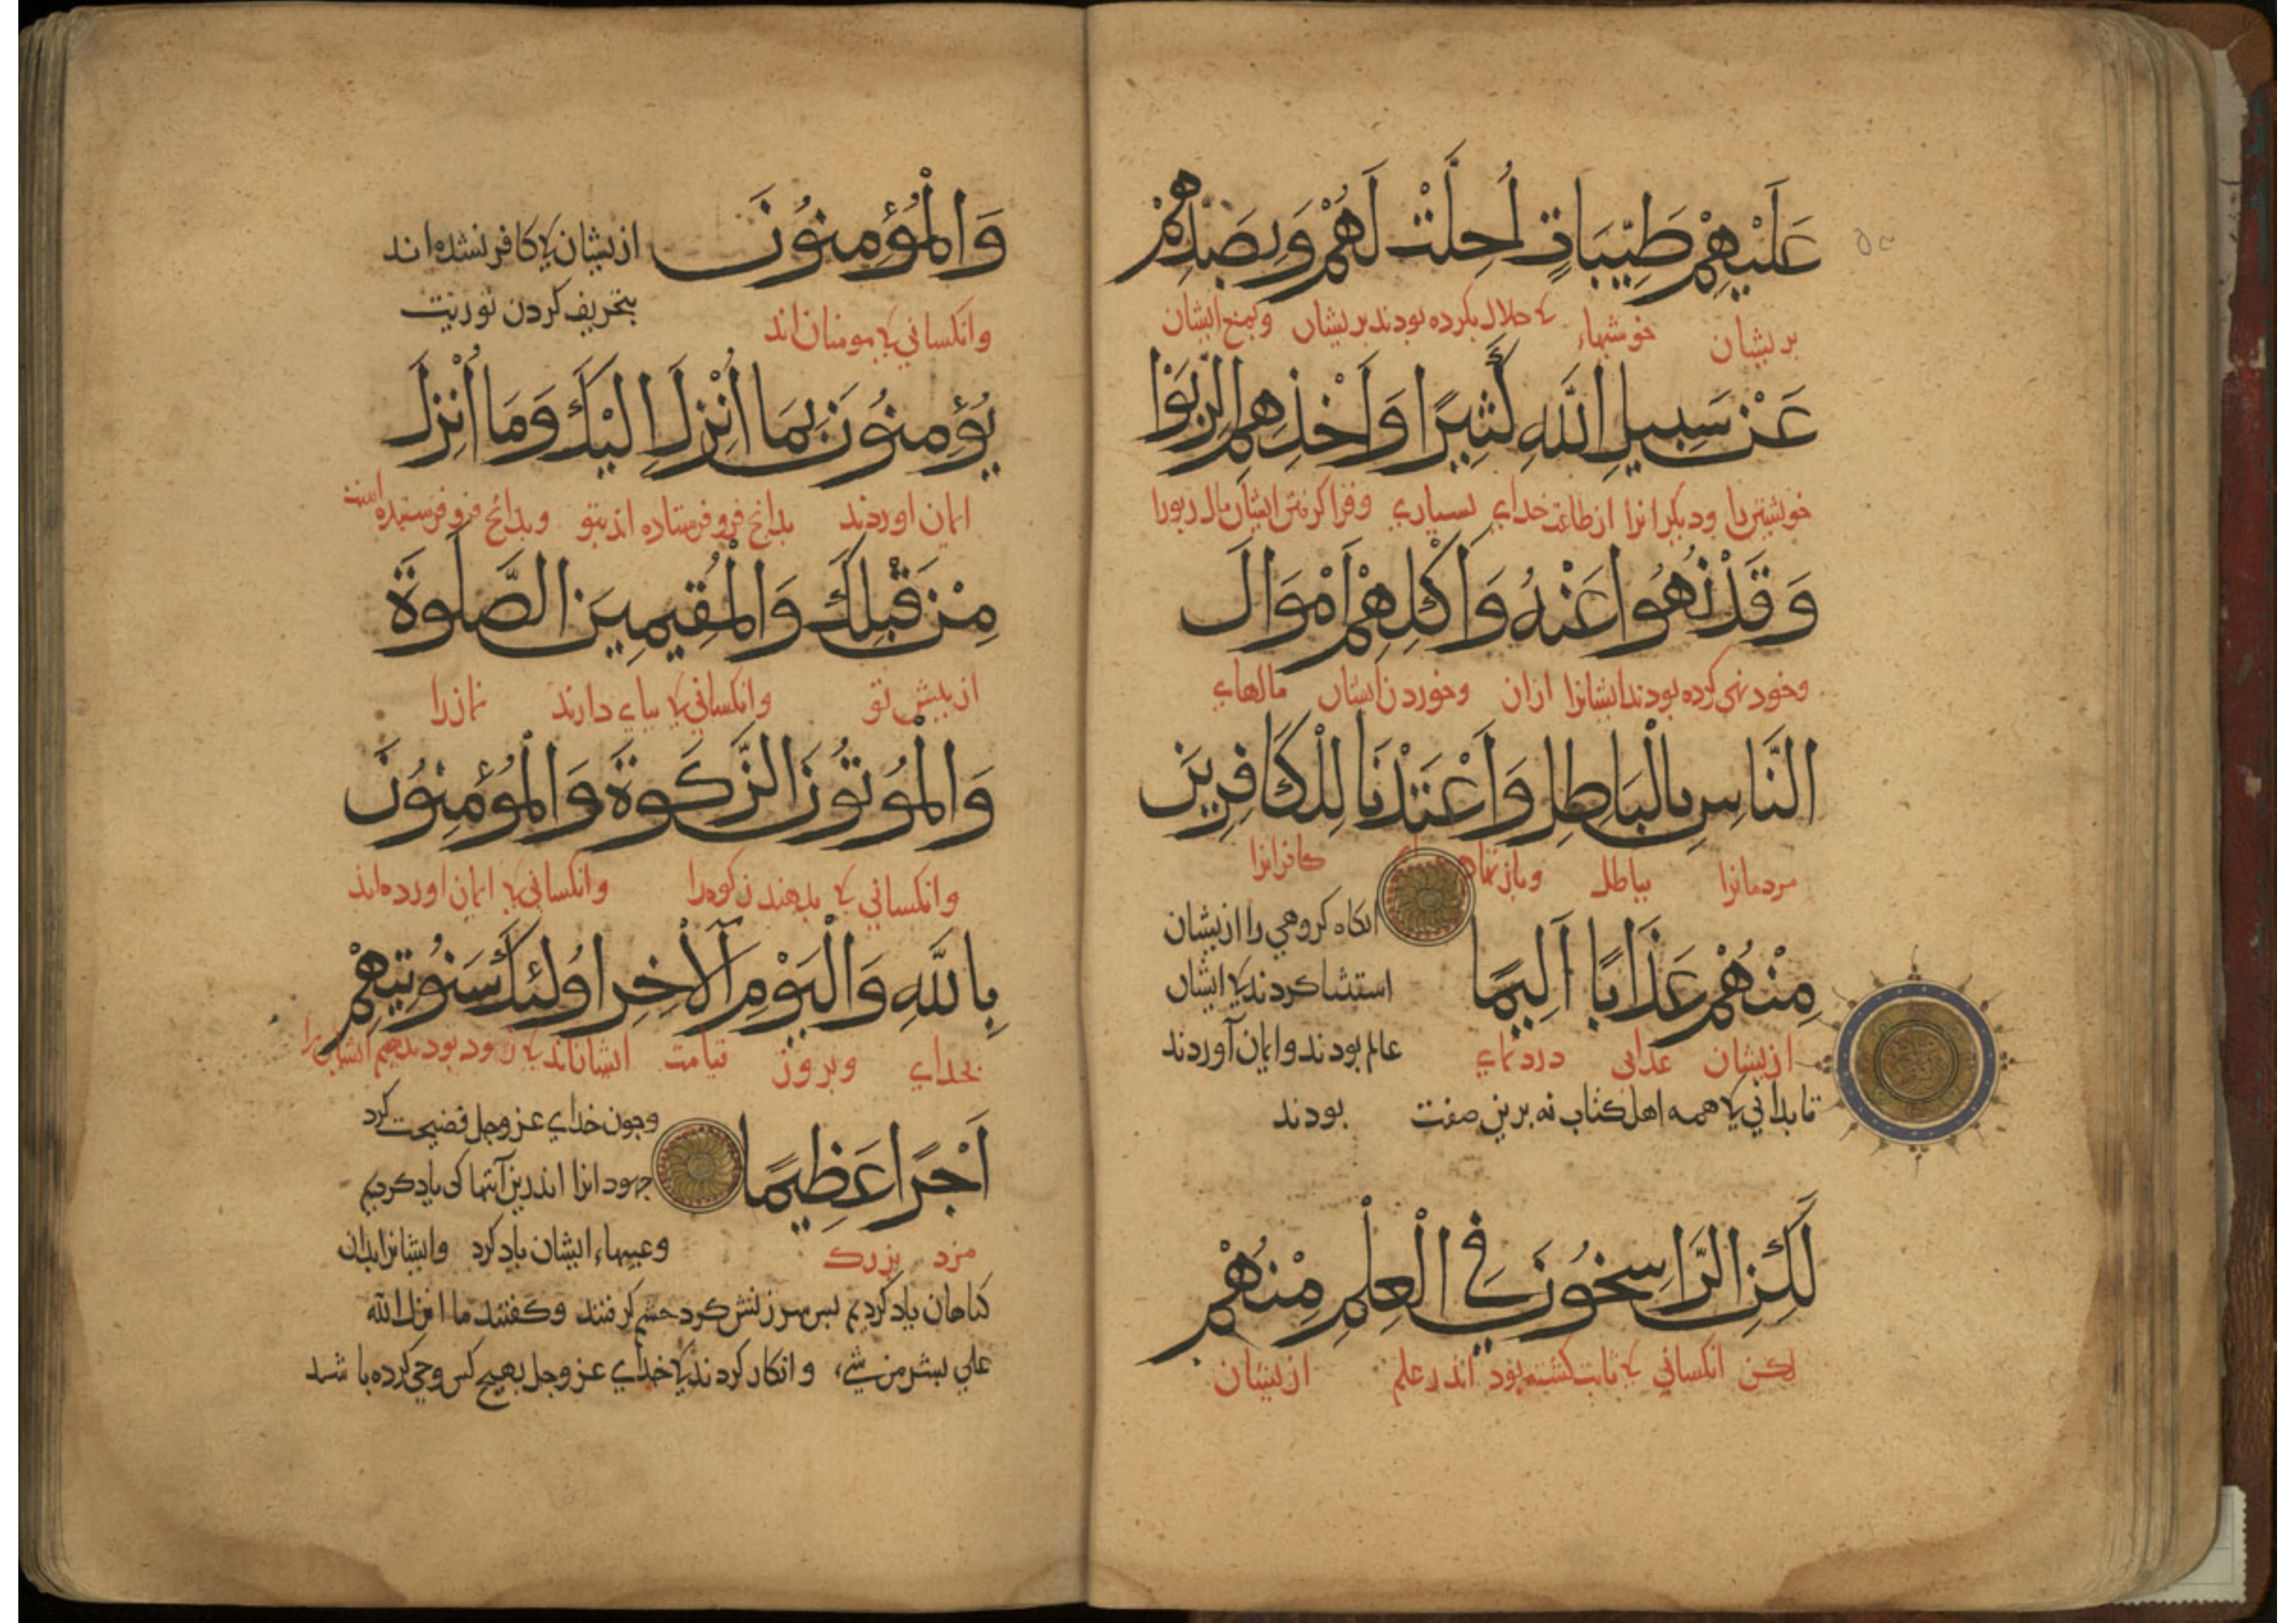 عَلَيْهِمْ طَيِّبَاتٍ اُحِلَّتْ لَهُمْ وَبِصَدِّهِمْ
بریشان خوشیهاء کی حلال بکرده بودند بریشان وبمنع ایشان
عَنْ سَبِيلِ اللّٰهِ كَثِيرًا وَاَخْذِهِمُ الرِّبٰوا
خویشتن را ودیگرانرا از طاعت خدای بسیاری وفرا گرفتن ایشان مال ربورا
وَقَدْ نُهُوا عَنْهُ وَاَكْلِهِمْ اَمْوَالَ
وخود نهی کرده بودند ایشانرا ازان وخوردن ایشان مالهای
النَّاسِ بِالْبَاطِلِ وَاَعْتَدْنَا لِلْكَافِرِينَ
مردمانرا بباطل کافرانرا
مِنْهُمْ عَذَابًا اَلِيمًا
انکاه کروهی را ازیشان
استثنا کردند کی ایشان
عالم بودند وایمان آوردند
ازیشان عذابی دردنمای
تا بدانی کی همه اهل کتاب نه برین صفت بودند
لٰكِنِ الرَّاسِخُونَ فِي الْعِلْمِ مِنْهُمْ
لکن انکسانی کی ثابت کشته بود اندر علم ازیشان
وَالْمُؤْمِنُونَ
ازیشان کی کافر نشده اند
بتحریف کردن توریت
وانکسانی کی مومنان اند
يُؤْمِنُونَ بِمَا اُنْزِلَ اِلَيْكَ وَمَا اُنْزِلَ
ایمان اوردند بدانچ فرو فرستاده اند بتو وبدانچ فرو فرستیده است
مِنْ قَبْلِكَ وَالْمُقِيمِينَ الصَّلٰوةَ
از پیش تو وانکسانی کی بپای دارند نماز را
وَالْمُؤْتُونَ الزَّكٰوةَ وَالْمُؤْمِنُونَ
وانکسانی کی بدهند زکوه را وانکسانی کی ایمان اورده اند
بِاللّٰهِ وَالْيَوْمِ الْاٰخِرِ اُولٰئِكَ سَنُؤْتِيهِمْ
بخدای وبروز قیامت ایشاناند کی زود بود بدهیم ایشان را
اَجْرًا عَظِيمًا
وچون خدای عز وجل فضیحت کرد
جهودانرا اندرین آیتها کی یاد کردیم
وعیبهاء ایشان یاد کرد وایشانرا بدان
مزد بزرک
کناهان یاد کردیم بس سرزنش کرد خشم کرفتند وکفتند ما انزل الله
علی بشر من شیء وانکار کردند کی خدای عز وجل بهیچ کس وحی کرده باشد